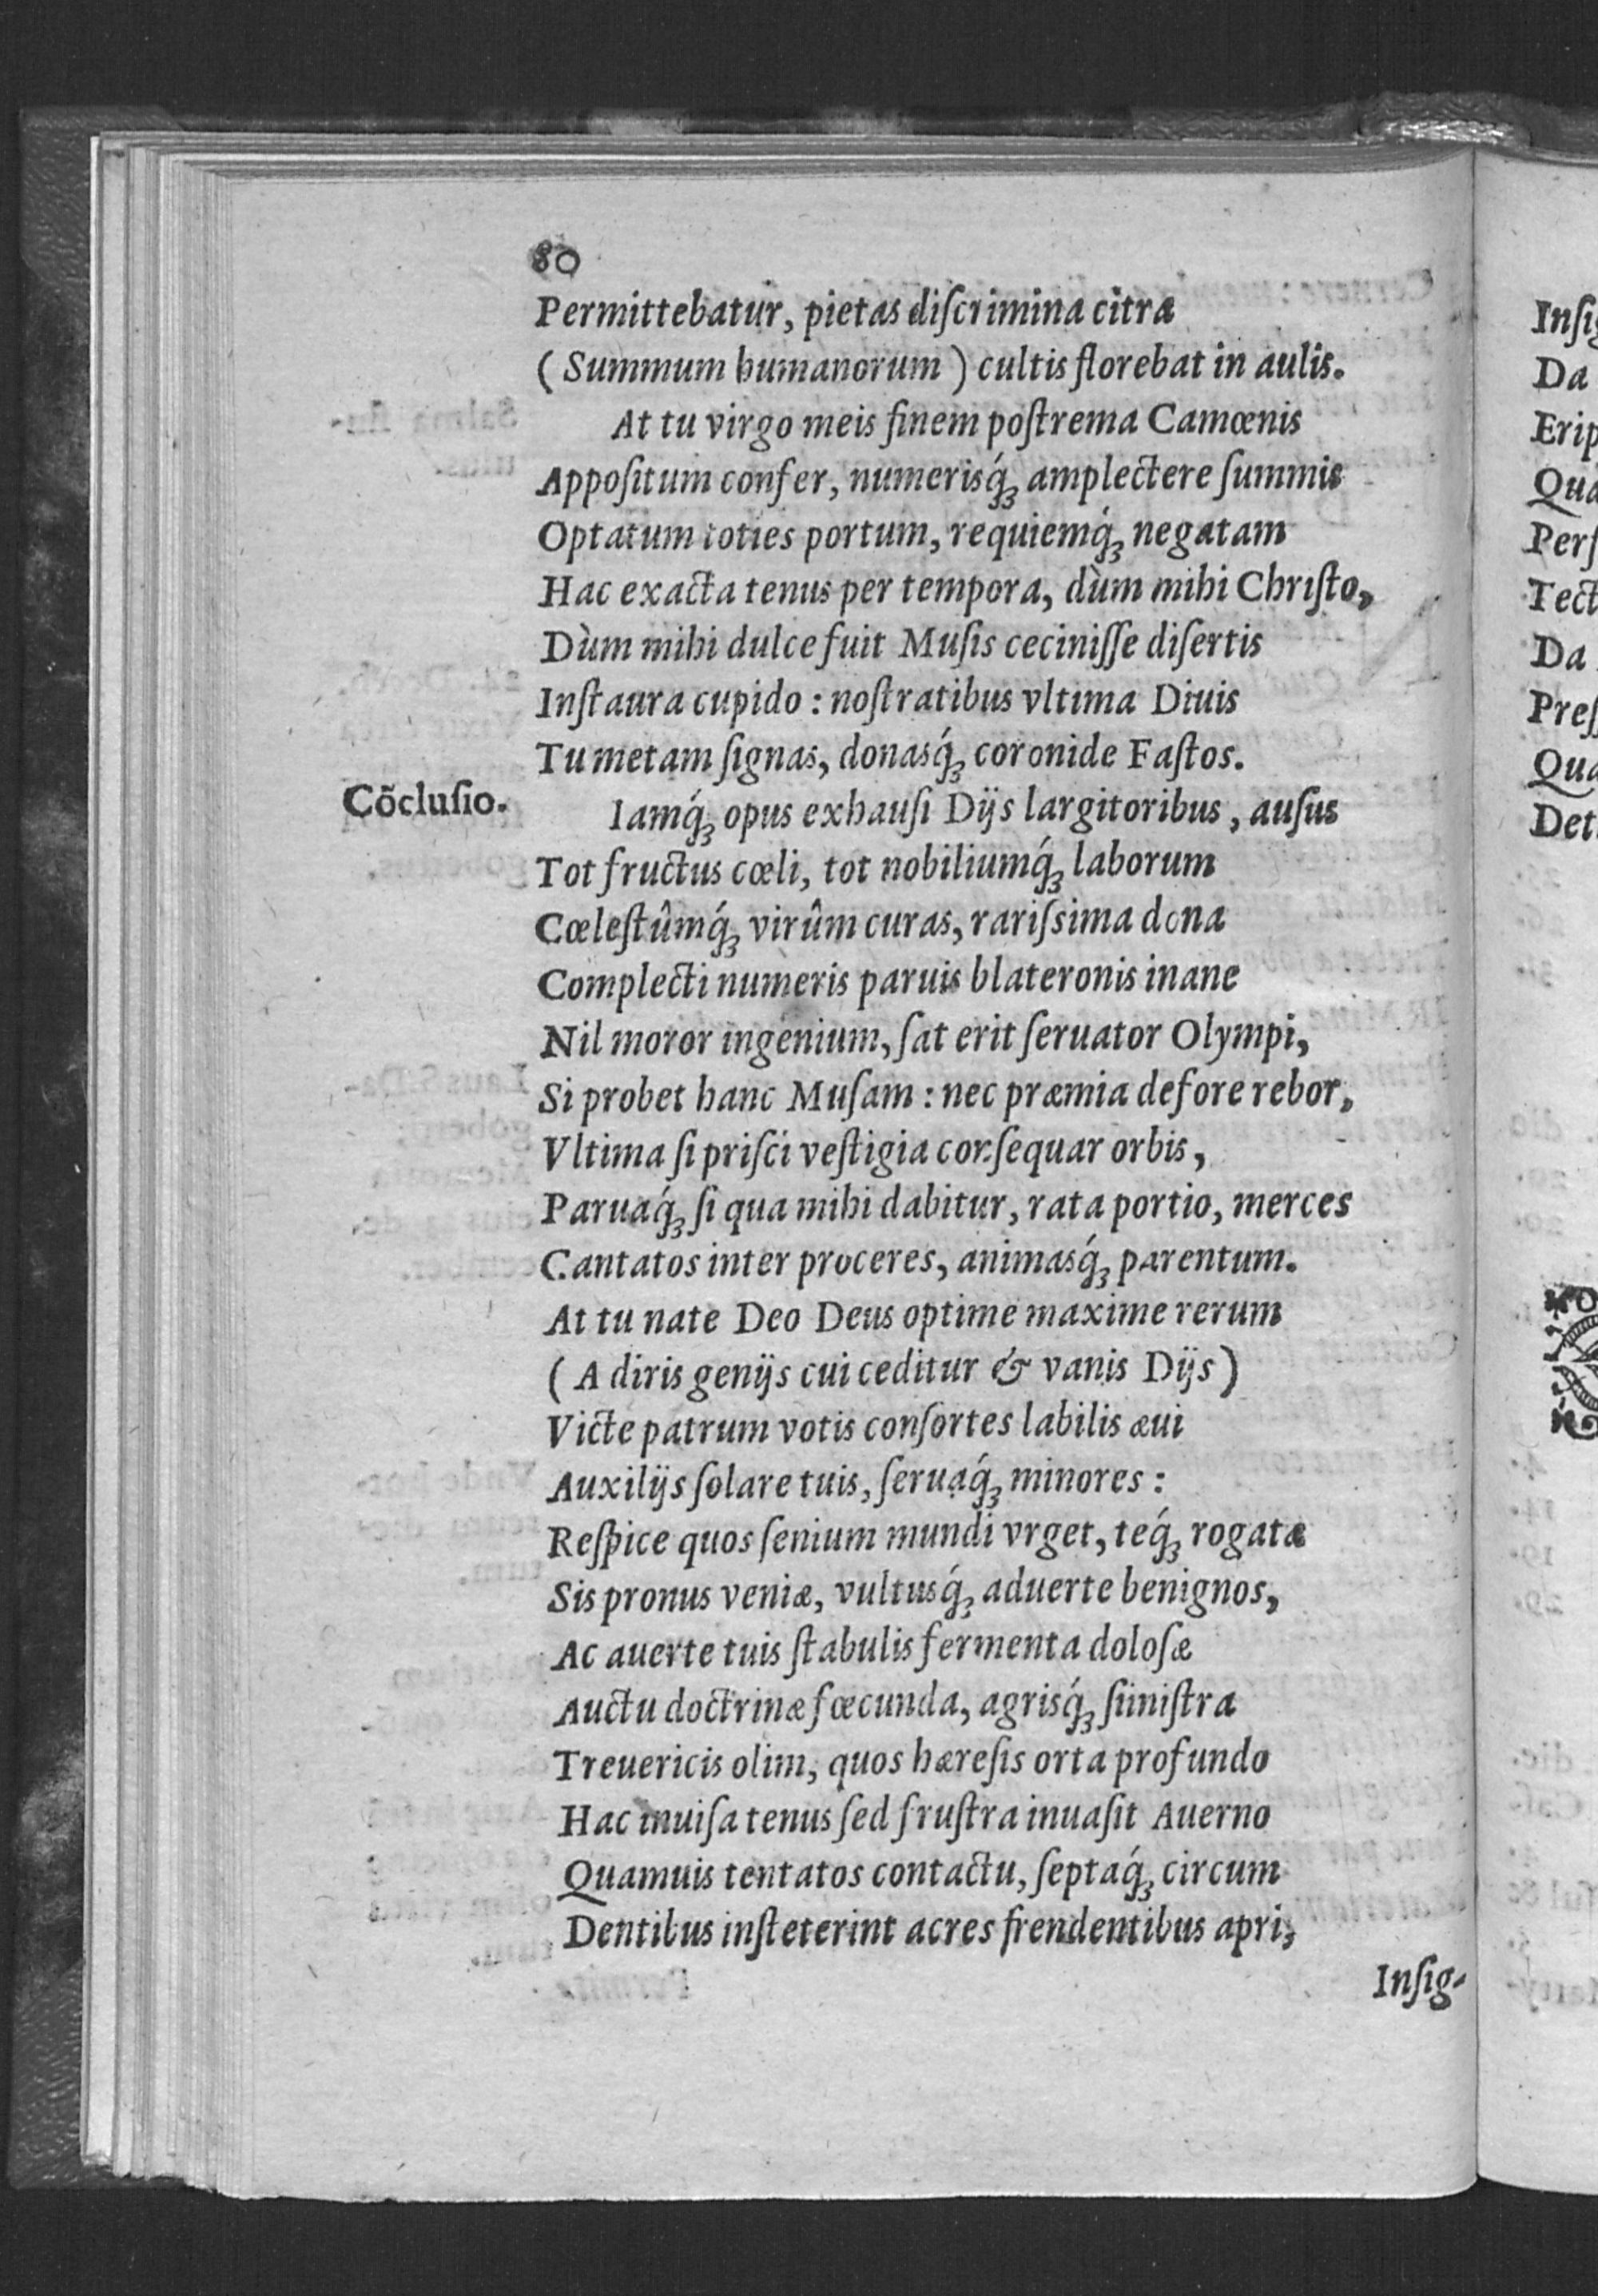 80
Permittebatur, pietas diſcrimina citra
( Summum humanorum ) cultis florebat in aulis.
At tu virgo meis finem poſtrema Camœnis
Appoſitum confer, numerisq́ꝫ amplectere ſummis
Optatum toties portum, requiemq́ꝫ negatam
Hac exacta tenus per tempora, dùm mihi Chriſto,
Dùm mihi dulce fuit Muſis ceciniſſe diſertis
Inſtaura cupido : noſtratibus vltima Diuis
Tu metam ſignas, donasq́ꝫ coronide Faſtos.
Cõcluſio.
Iamq́ꝫ opus exhauſi Dijs largitoribus, auſus
Tot fructus cœli, tot nobiliumq́ꝫ laborum
Cœleſtûmq́ꝫ virûm curas, rariſsima dona
Complecti numeris paruis blateronis inane
Nil moror ingenium, ſat erit ſeruator Olympi,
Si probet hanc Muſam : nec præmia defore rebor,
Vltima ſi priſci veſtigia conſequar orbis,
Paruaq́ꝫ ſi qua mihi dabitur, rata portio, merces
Cantatos inter proceres, animasq́ꝫ parentum.
At tu nate Deo Deus optime maxime rerum
( A diris genijs cui ceditur & vanis Dijs )
Victe patrum votis conſortes labilis æui
Auxilijs ſolare tuis, ſeruaq́ꝫ minores :
Reſpice quos ſenium mundi vrget, teq́ꝫ rogatæ
Sis pronus veniæ, vultusq́ꝫ aduerte benignos,
Ac auerte tuis ſtabulis fermenta doloſæ
Auctu doctrinæ fœcunda, agrisq́ꝫ ſiiniſtra
Treuericis olim, quos hæreſis orta profundo
Hac inuiſa tenus ſed fruſtra inuaſit Auerno
Quamuis tentatos contactu, ſeptaq́ꝫ circum
Dentibus inſteterint acres frendentibus apri,
Inſig-
Da
Da